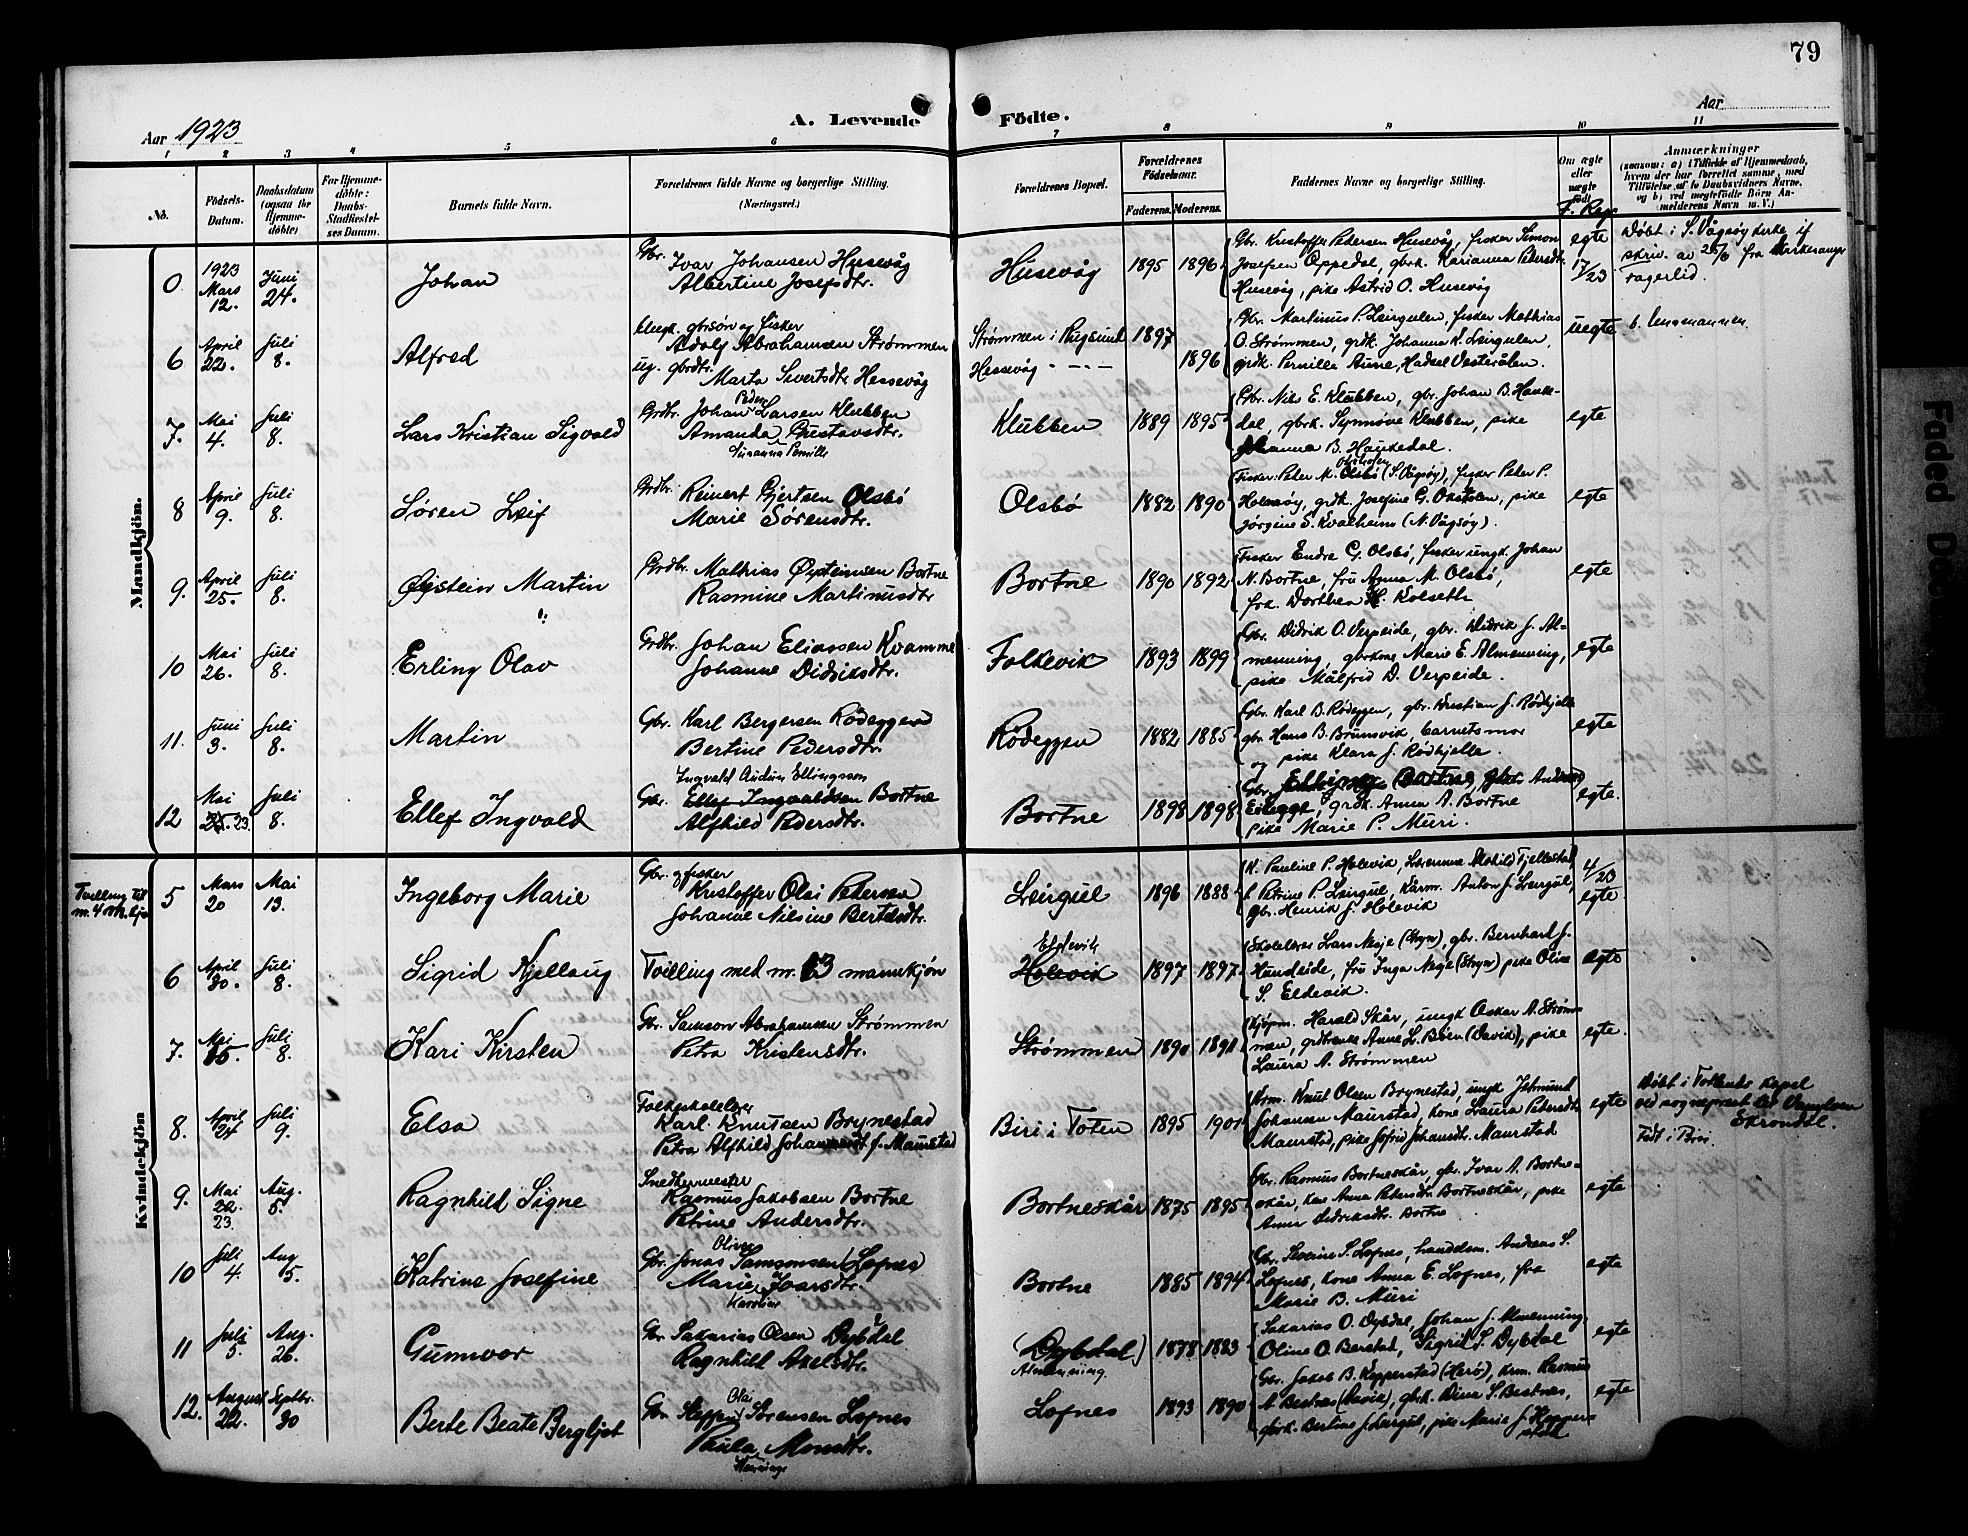 79
Aar 1923
A. Levende Födte.
Aar
1 2 3 4 5 6 7 8 9 10 11
No.
Födsels-Datum.
Daabsdatum (ogsaa for Hjemmedöbte)
For Hjemmedöbte: Daabs-Stadfæstelses Datum.
Barnets fulde Navn.
Forældrenes fulde Navne og borgerlige Stilling. (Næringsvei.)
Forældrenes Bopæl.
Forældrenes Födselsaar.
Faderens. Moderens.
Faddernes Navne og borgerlige Stilling.
Om ægte eller uægte födt
Anmærkninger
(saasom: a) i Tilfælde af Hjemmedaab,
hvem der har forrettet samme, med
Tilföielse af to Daabsvidners Navne,
og b) ved uægtefödte Börn Anmelderens Navn m. V.)
Mandkjön.
0 1923 Mars 12. Juni 24.
Johan
Gbr. Ivar Johansen Husevåg
Albertine Josefsdtr.
Husevåg 1895 1896
Gbr. Kristoffer Pedersen Husevåg, fisker Simon
Josefsen Oppedal, gbrk. Karianna Pedersdtr.
Husevåg, pike Astrid O. Husevåg
egte 17/23
Döbt i S. Vågsöy kirke if
skriv. av
6 April 22. Juli 8.
Alfred
Ungk. gbrsön og fisker
Adolf Abrahamsen Strömmen
ug. gbrdtr.
Marta Sivertsdtr Hessevåg
Strømmen i Rugsund 1897
Hessevåg - - - 1896
Gbr. Martinus P. Leirgulen, fisker Mathias
O. Strömmen, grdk. Johanna K. Leirgulen,
grdk. Pernille Aune, Hadsel Vesterålen.
uegte
7. Mai 4. Juli 8.
Lars Kristian Sigvald
Grdbr. Johan Peder Larsen Klubben
Amanda Gustavsdtr.
Susanna Pernille
Klubben 1889 1895
Gbr. Nils E. Klubben, gbr. Johan B. Hauke-
dal, gbrk. Synnöve Klubben, pike
Johanna B. Haukedal.
egte
8 April 9. Juli 8.
Sören Leif
Grdbr. Reinert Gjertsen Olsbö
Marie Sörensdtr.
Olsbö 1882 1890
Fisker Peder M. Olsbö (S. Vågsöy), fisker Peter P.
Holevåg, grdk. Josefine G. Oksholen, pike
Jörgine S. Kvalheim (N. Vågsöy).
egte
9. April 25. Juli 8.
Øystein Martin
Grdbr. Mathias Øysteinsen Bortne
Rasmine Martinusdtr
Bortne 1890 1892
Fisker Endre G. Olsbö, fisker ungk. Johan
N. Bortne, frü Anna M. Olsbö,
frk. Dorthea H. Kolseth
egte
10 Mai 26. Juli 8.
Erling Olav
Grdbr. Johan Eliassen Kvamme
Johanne Didriksdtr.
Folkevik 1893 1899
Gbr. Didrik O. Verpeide, gbr. Didrik J. Al-
menning, gbrkone Marie E. Almenning,
pike Målfrid D. Verpeide.
egte
11. Juni 3. Juli 8.
Martin
Gbr. Karl Bergersen Rödeggen
Bertine Pedersdtr.
Rödeggen 1882 1885
Gbr. Karl B. Rödeggen, gbr. Kristian J. Rödhjelle
gbr. Hans B. Brunsvik, barnets mor
og pike Klara J. Rödhjelle.
egte
12 Mai 23. Juli 8.
Ellef Ingvald
Ingvald Audun Ellingssen
Gbr. Ellef Ingvaldsen Bortne
Alfhild Pedersdtr.
Bortne 1898 1898
grdk. Anna A. Bortne
pike Marie P. Muri.
egte.
Kvindekjön
Tvilling til
nr. 4
5 Mars 20 Mai 13.
Ingeborg Marie
Gbr. og fisker
Kristoffer Olai Petersen
Johanne Nilsine Bertelsdtr.
Leirgul 1896 1888
K. Pauline P. Holevik, Lærerinne Tjellestad
Petrine P. Leirgul, Kårm. Anton J. Leirgul,
gbr. Henrik J. Holevik
4/23 egte.
6 April 30. Juli 8.
Sigrid Kjellaug
Tvilling med nr. 13 mannkjön
Eldevik
Holevik 1897 1897
Skolelærer Lars Nesje (Stryn), gbr. Bernhard J.
Hundeide, frü Inga Nesje (Stryn) pike Oline
S. Eldevik.
egte
7. Mai 15. Juli 8.
Kari Kirsten
Gbr. Samson Abrahamsen Strömmen
Petra Kristensdtr.
Strømmen 1890 1891
Kjöpm. Harald Skår, ungk Oskar A. Ström-
men, grdbrenke Anne L. Böen (Davik), pike
Laura A. Strømmen
egte.
8. April 24 Juli 9.
Elsa
Folkeskolelærer
Karl Knutsen Brynestad
Petra Alfhild Johansdtr f. Maurstad
Biri i Toten 1895 1901
Krm. Knut Olsen Brynestad, ungk Jetmund
Johansen Maurstad, kone Laura Pedersdtr
Maurstad, pike Jofrid Johansdtr. Maurstad
egte
Döbt i Totlands kapel
ved sogneprest
Födt i Biri.
9. Mai 22. 23. Aug. 5.
Ragnhild Signe
Snedkermester
Rasmus Jakobsen Bortne
Petrine Andersdtr.
Bortneskår 1875 1895
Gbr. Rasmus Bortneskår, gbr. Ivar A. Bortne-
skår, kone Anna Petersdtr. Bortneskår, pike
Anna Didriksdtr. Bortne
egte
10 Juli 4. Aug 5.
Katrine Josefine
Oliver
Gbr. Jonas Samsonsen (Lofnes)
Marie Ivarsdtr.
Karoline
Bortne 1885 1894
Gbr. Severin S. Lofnes, handelsm. Andreas S.
Lofnes, kone Anna E. Lofnes, frü
Marie B. Muri
egte
11 Juli 5. Aug. 26.
Gunnvor
Gbr. Sakarias Olsen Dybdal
Ragnhild Akselsdtr.
(Dybdal)
Almenning. 1878 1883
Sakarias O. Dybdal, Johan J. Almenning,
Oline O. Berstad, Sigrid S. Dybdal
egte
12. August 22. Septbr. 30
Berte Beate Bergljot
Olai
Gbr. Steffen Sörensen Lofnes
Paula Monsdtr.
Lofnes 1893 1890
Gbr. Jakob B. Kopperstad (Herö), krm. Rasmus
A. Bestnes (Davik), gbrk. Dina S. Bestnes,
gbrk. Bertine J. Leirgul, pike Marie J. Kopper-
stad
egte
Faded Doc